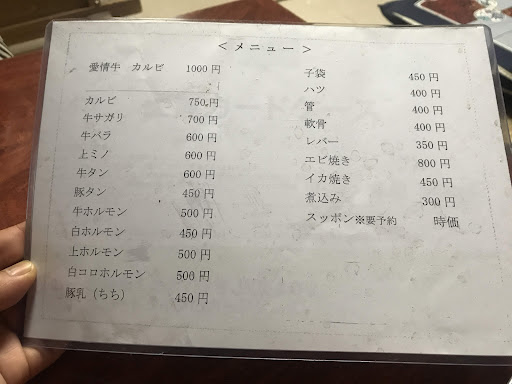 ＜メニュー＞
愛情牛 カルビ 1000円
カルビ 750円
牛サガリ 700円
牛バラ 600円
上ミノ 600円
牛タン 600円
豚タン 450円
牛ホルモン 500円
白ホルモン 450円
上ホルモン 500円
白ココホルモン 500円
豚乳（ちち） 450円
子袋 450円
ハツ 400円
管 400円
軟骨 400円
レバー 350円
エビ焼き 800円
イカ焼き 450円
煮込み 300円
スッポン※要予約 時価